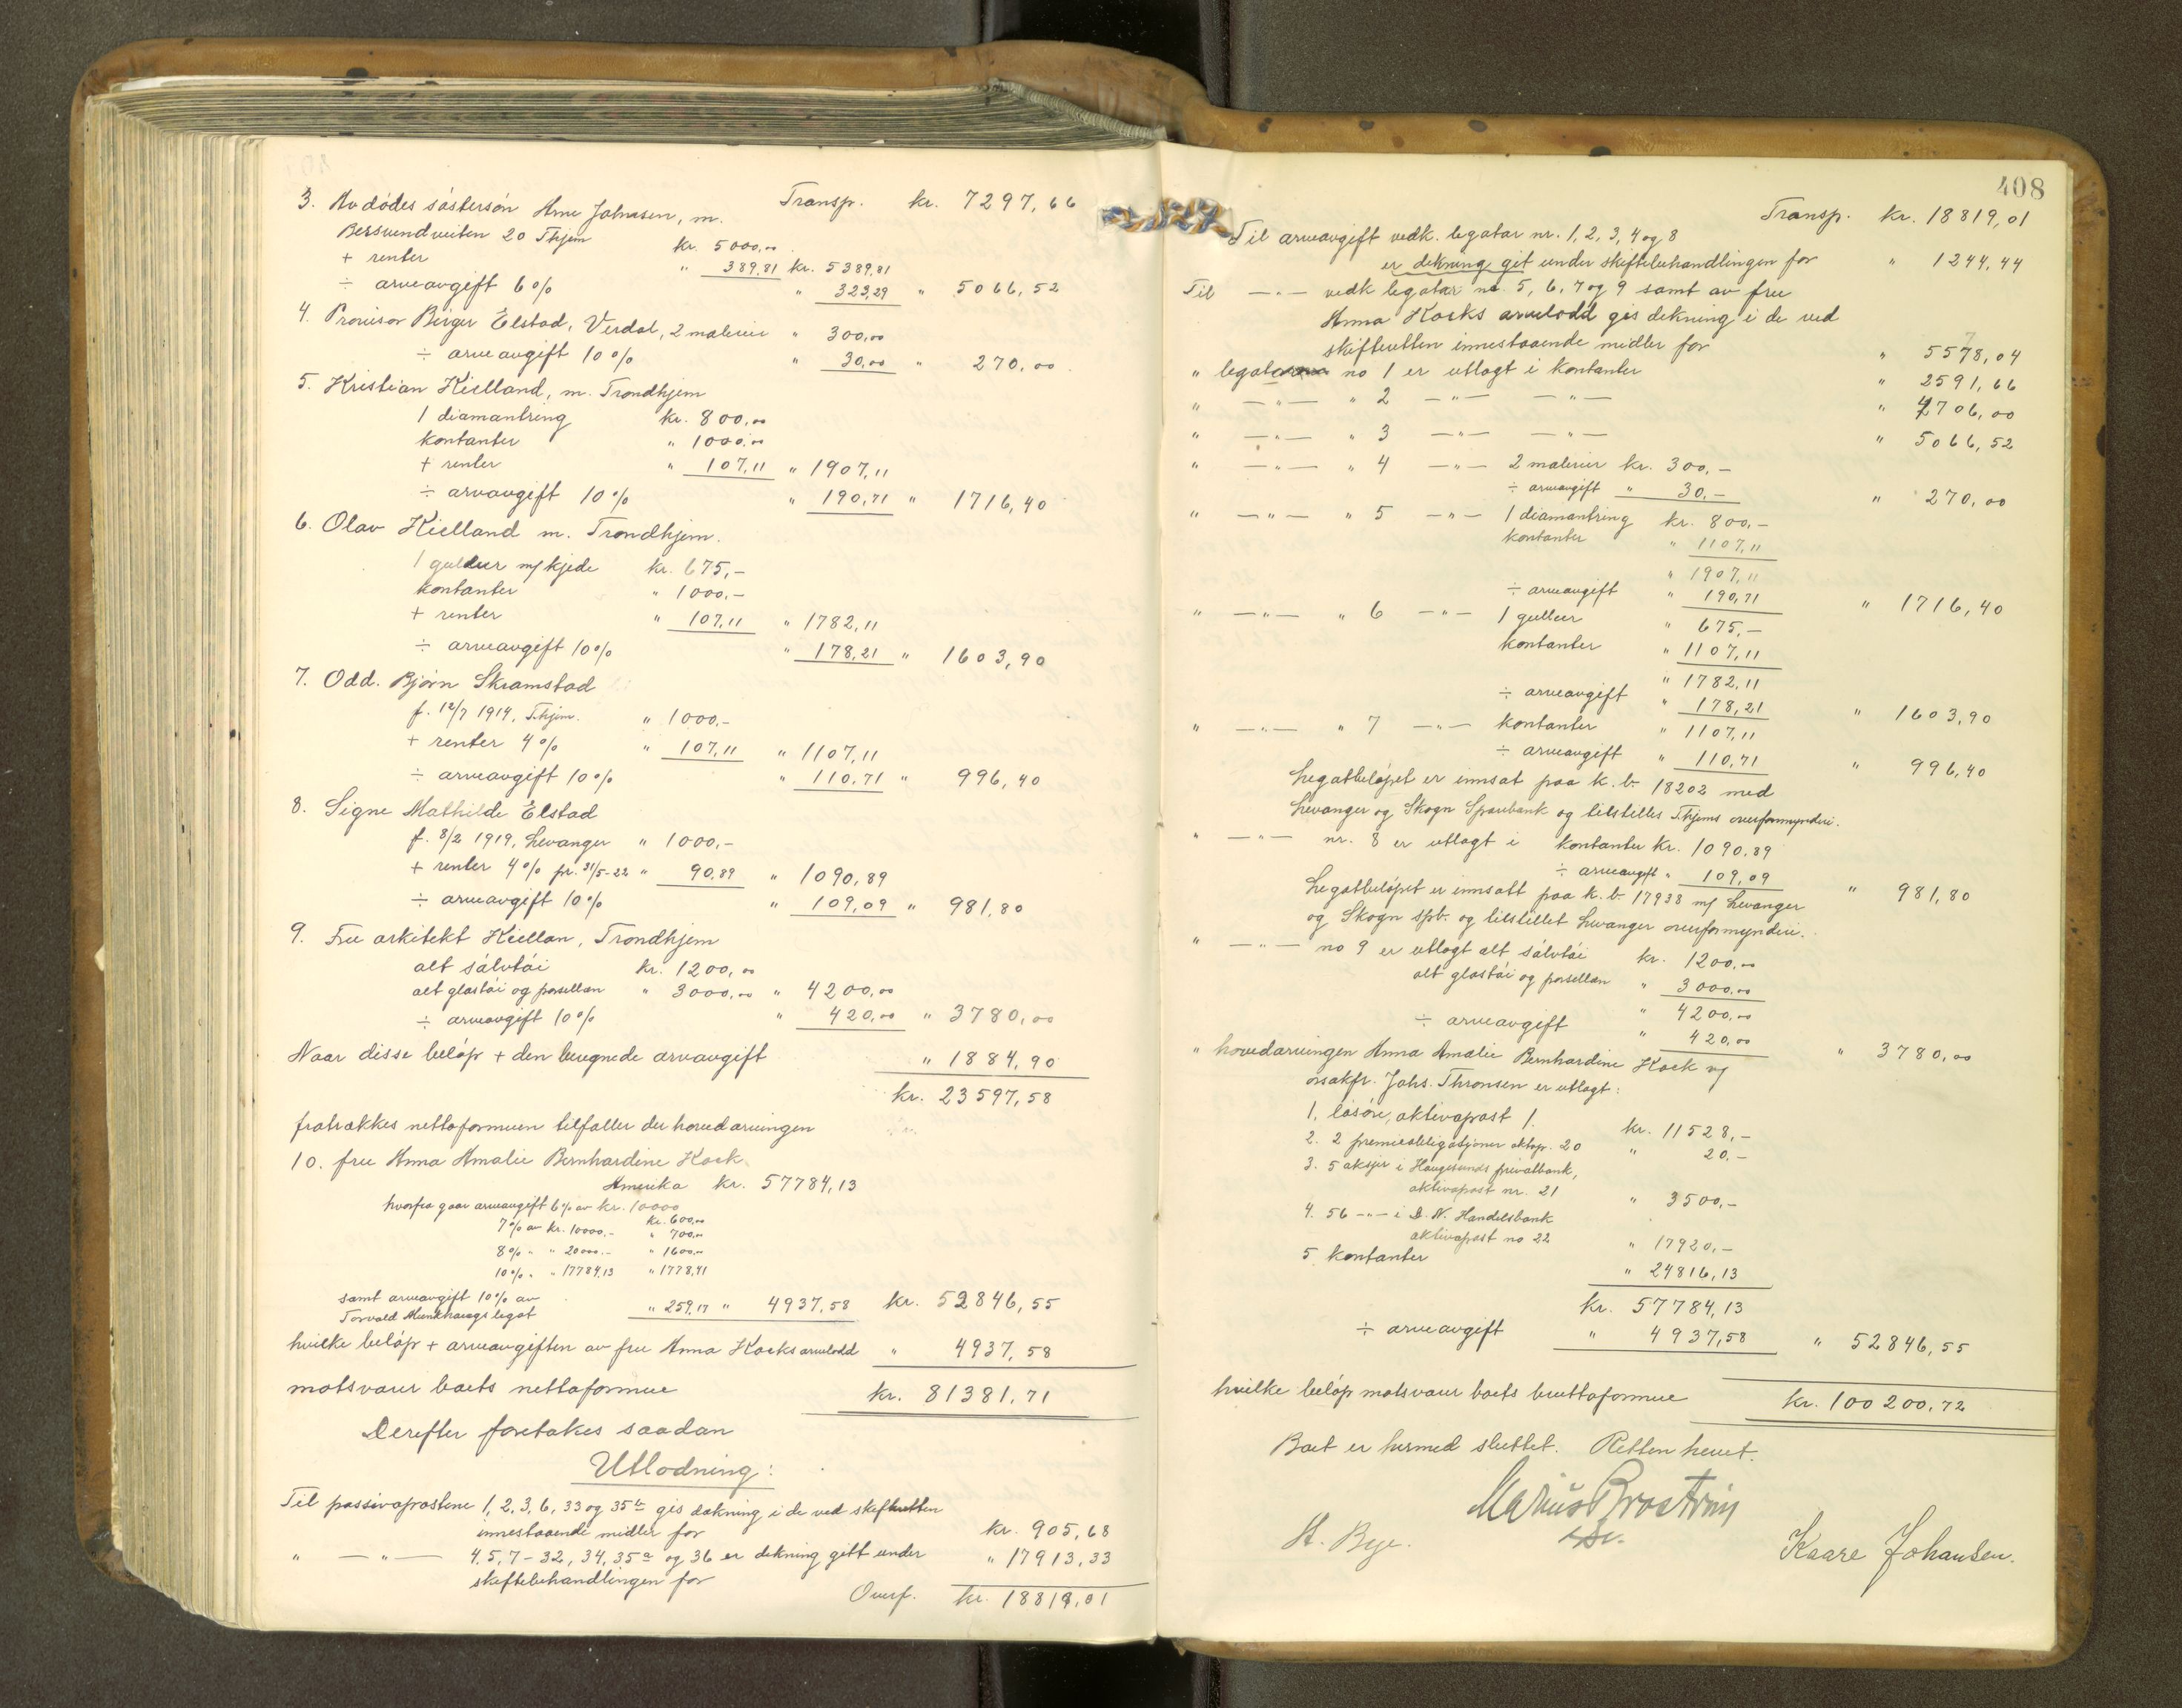 3. Av dödes søstersön Arne Johnsen, m. Transp. kr. 7297,66
Bersvendveiten 20 Thjem kr. 5000,00
+ renter " 389,81 kr. 5389,81
÷ arveavgift 6% " 323,29 " 5066,52
4. Provisor Birger Elstad, Verdal, 2 malerier " 300,00
÷ arveavgift 10% " 30,00 " 270,00
5. Kristian Kielland, m. Trondhjem
1 diamantring kr. 800,00
kontanter " 1000,00
+ renter " 107,11 " 1907,11
÷ arvavgift 10% " 190,71 " 1716,40
6. Olav Kielland m. Trondhjem.
1 guldur m/kjede kr. 675,-
kontanter " 1000,-
+ renter " 107,11 " 1782,11
÷ arveavgift 10% " 178,21 " 1603,90
7. Odd. Bjørn Skramstad
f. 12/7 1914, Thjem. " 1000,-
+ renter 4% " 107,11 " 1107,11
÷ arveavgift 10% " 110,71 " 996,40
8. Signe Mathilde Elstad
f. 8/2 1919, Levanger " 1000,-
+ renter 4% pr. 31/5-22 " 90,89 " 1090,89
÷ arveavgift 10% " 109,09 " 981,80
9. Fru arkitekt Kiellan, Trondhjem
alt sölvtöi kr. 1200,00
alt glastöi og porsellan " 3000,00 " 4200,00
÷ arveavgift 10% " 420,00 " 3780,00
Naar disse belöp + den beregnede arvavgift " 1884,90
kr. 23597,58
fratrækkes nettoformuen tilfaller der hovedarvingen
10. fru Anna Amalie Bernhardine Kock
Amerika kr. 57784,13
hvorfra gaar arveavgift 6% av kr. 10000 kr. 600,00
7% av kr. 10000.- " 700,00
8% " " 20000.- " 1600,00
10% " " 17784,13 " 1778,41
samt arveavgift 10% av
Torvald Munkhaugs legat " 259,17 " 4937,58 kr. 52846,55
hvilke belöp + arveavgiften av fru Anna Kocks arvelodd " 4937,58
motsvarer boets nettoformue kr. 81381,71
Derefter foretakes saadan
Utlodning:
Til passivapostene 1, 2, 3, 6, 33 og 35b gis dækning i de ved skifteretten
innestaaende midler for kr. 905,68
" —"— 4, 5, 7-32, 34, 35a og 36 er dekning gitt under " 17913,33
skiftebehandlingen for
Overf. kr. 18819,01
408
Transp. kr. 18819,01
Til arveavgift vedk. legatar nr. 1, 2, 3, 4 og 8
er dekning git under skiftebehandlingen for " 1244,44
Til —"— vedk legatar no. 5, 6, 7 og 9 samt av fru
Anna Kocks arvelodd gis dekning i de ved
skifteretten innestaaende midler for " 5578,04
" legat no 1 er utlagt i kontanter " 2591,66
" —"— " 2 —"— —"— " 4706,00
" —"— " 3 —"— —"— " 5066,52
" —"— " 4 —"— 2 malerier kr. 300,-
÷ arveavgift " 30,- " 270,00
" —"— " 5 —"— 1 diamantring kr. 800,-
kontanter " 1107,11
" 1907,11
÷ arveavgift " 190,71 " 1716,40
" —"— " 6 —"— 1 gulluer " 675,-
kontanter " 1107,11
" 1782,11
÷ arveavgift " 178,21 " 1603,90
" —"— " 7 —"— kontanter " 1107,11
÷ arveavgift " 110,71 " 996,40
Legatbelöpet er innsat paa k.b. 18202 med
Levanger og Skogn Sparebank og tilstilles Thjems overformynderi.
" —"— nr. 8 er utlagt i kontanter kr. 1090,89
÷ arveavgift " 109,09 " 981,80
Legatbelöpet er innsatt paa k.b. 17938 m/ Levanger
og Skogn spb. og tilstillet Levanger overformynderi.
" —"— no 9 er utlagt alt sölvtöi kr. 1200,00
alt glastöi og porsellan " 3000,00
" 4200,00
÷ arveavgift " 420,00 " 3780,00
" hovedarvingen Anna Amalie Bernhardine Kock v/
o.r.sakfr. Johs. Thronsen er utlagt:
1. lösöre, aktivapost 1. kr. 11528,-
2. 2 premieobligasjoner aktivp. 20 " 20,-
3. 5 aksjer i Haugesunds privatbank,
aktivapost nr. 21 " 3500,-
4. 56 —"— i D. N. Handelsbank
aktivapost no 22 " 17920,-
5 kontanter " 24816,13
kr. 57784,13
÷ arveavgift " 4937,58 " 52846,55
hvilke belöp motsvarer boets bruttoformue kr. 100200,72
Boet er hermed sluttet. Retten hevet.
Marius Broström
H. Bye. Kaare Johansen.